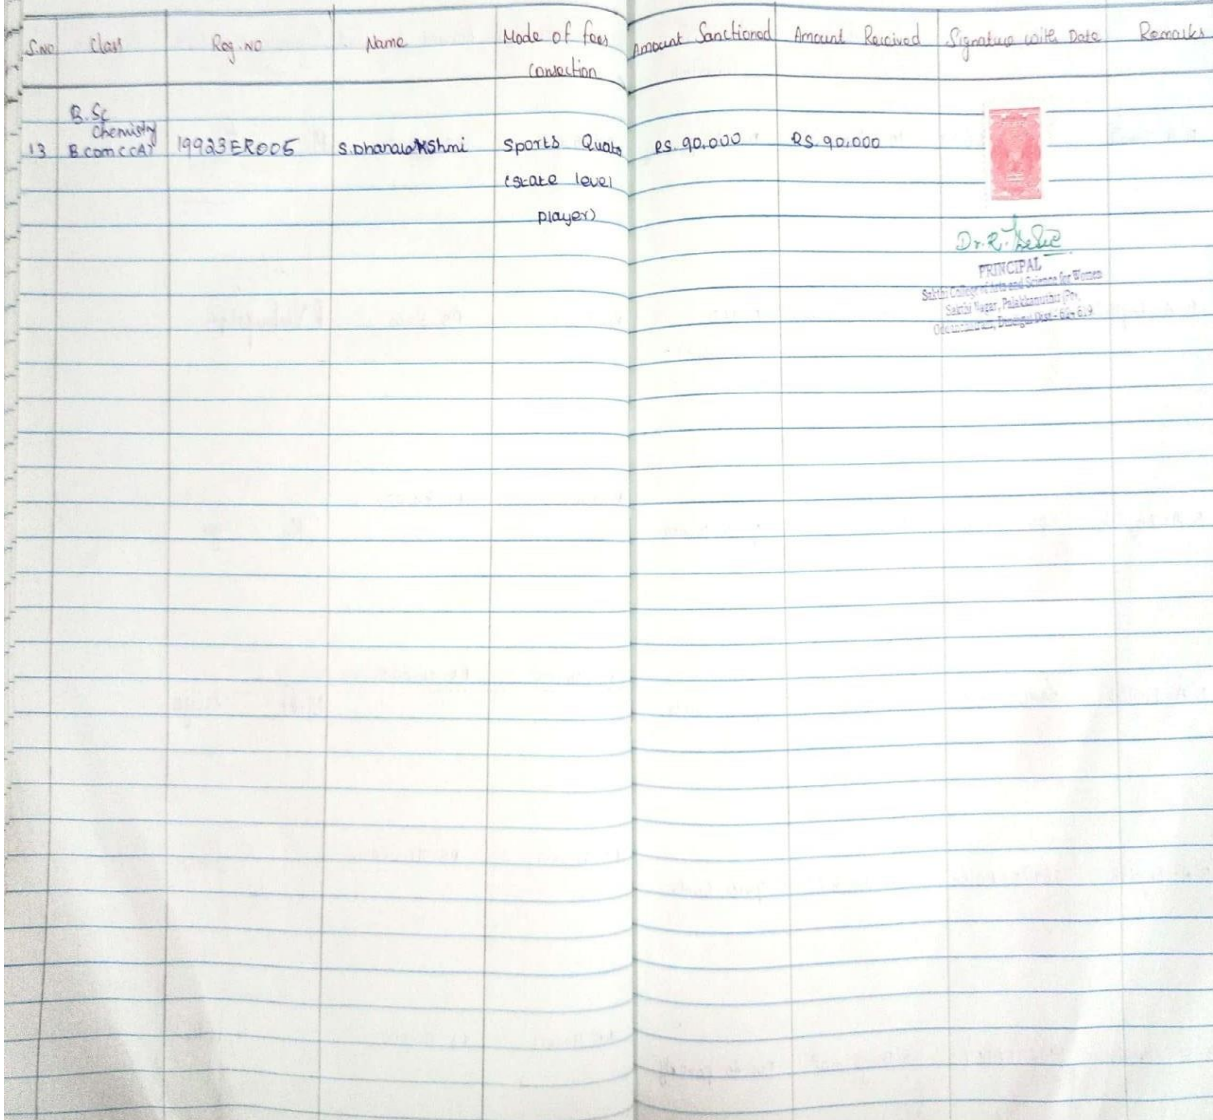 S.NO Class Reg.NO Name Mode of fees Amount Sanctioned Amount Received Signature with Date Remarks
B.Sc
Chemistry
13 B.com(CA) 19923ER005 S.Dhanalakshmi Sports Quota RS. 90,000 RS. 90,000
(State level
player)
Dr.R.
PRINCIPAL
Sakthi College of Arts and Science for Women
Sakthi Nagar, Palakkanuthu (Po),
Oddanchatram, Dindigul Dist - 624 619